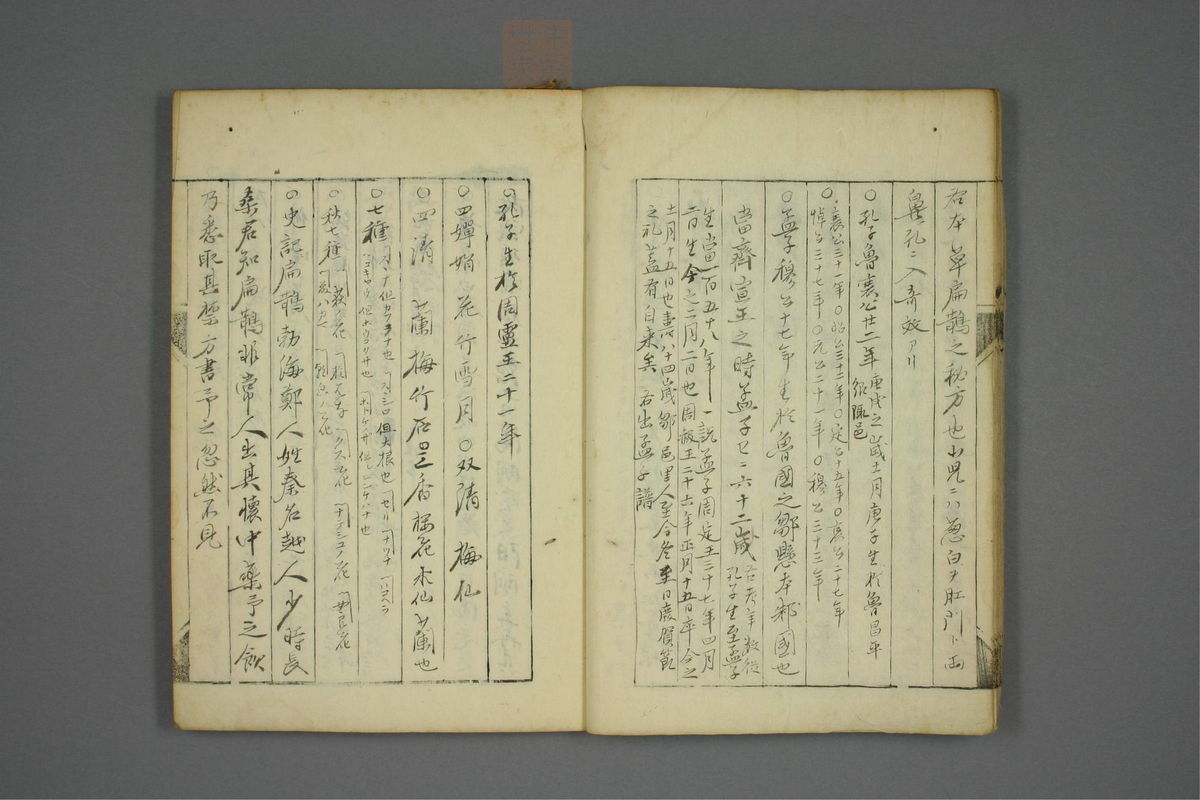 右本草扁鵲之秘方也小児ニハ葱白ヲ肛門ト両
鼻孔ニ入奇妙アリ
○孔子魯襄公廿二年庚戌之歳十一月庚子生於魯昌平
郷陬邑
○襄公三十一年○昭公三十二年○定公十五年○哀公二十七年
悼公三十七年○元公二十一年○穆公三十三年
○孟子穆公十七年生於魯國之鄒懸本邾國也
當齊宣王之時孟子已六十二歳右考年数從
孔子生至孟子
生當一百五十八年一説孟子周定王三十七年四月
二日生今之二月二日也周赧王二十六年正月十五日卒今之
十一月十五日也壽八十四歳鄒邑里人至今冬至日廢賀節
之礼蓋有自来矣 右出孟子譜
○孔子生於周靈王二十一年
○四嬋娟 花竹雪月○双清 梅仙
○四清 蘭梅竹石○三香 梅花水仙蘭也
○七種
○秋七種 萩ノ花
○史記扁鵲勃海鄭人姓秦名越人少時長
桑君知扁鵲非常人出其懐中藥予之飲
乃悉取其禁方書予之忽然不見